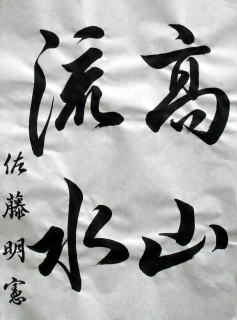 高山
流水
佐藤明憲